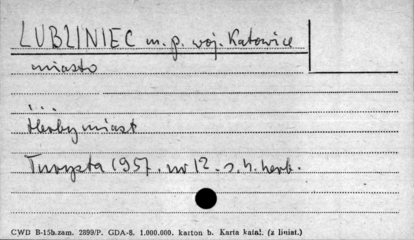 LUBLINIEC m. p. woj. Katowice
miasto
...
Herby miast
Turysta 1957. nr 12. s. h. herb.
CWD B-15b.zam. 2899/P. GDA-8. 1.000.000. karton b. Karta katal. (z liniat.)